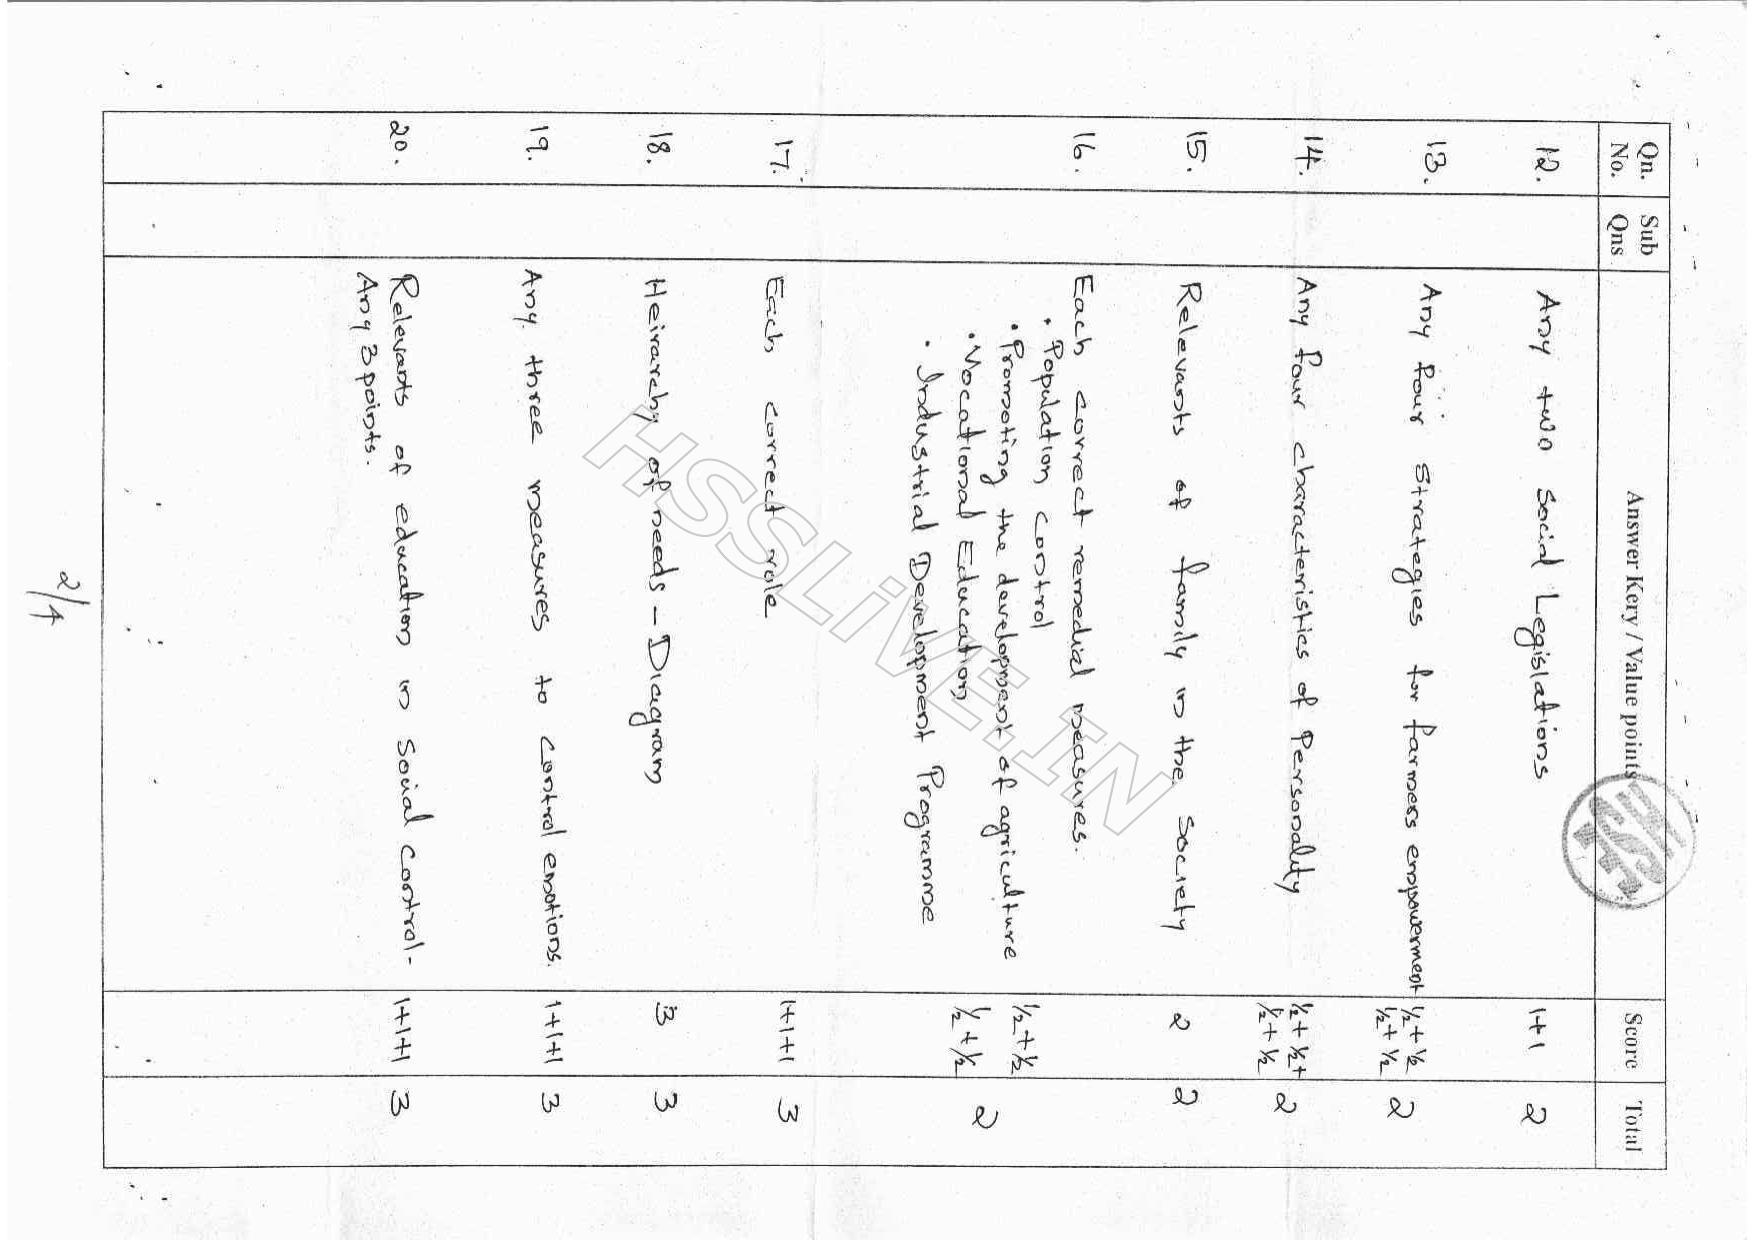 Qn. No. Sub Qns Answer Kery / Value points Score Total
HSE
12. Any two social Legislations 1+1 2
13. Any four strategies for farmers empowerment ½+½ ½+½ 2
14. Any four characteristics of Personality ½+½+ ½+½ 2
15. Relevants of family in the society 2 2
16. Each correct remedial measures.
• Population control
• Promoting the development of agriculture ½+½
• Vocational Education ½+½ 2
• Industrial Development Programme
17. Each correct role 1+1+1 3
18. Heirarchy of needs - Diagram 3 3
19. Any three measures to control emotions. 1+1+1 3
20. Relevants of education in social control- 1+1+1 3
Any 3 points.
HSSLiVE.IN
2/4